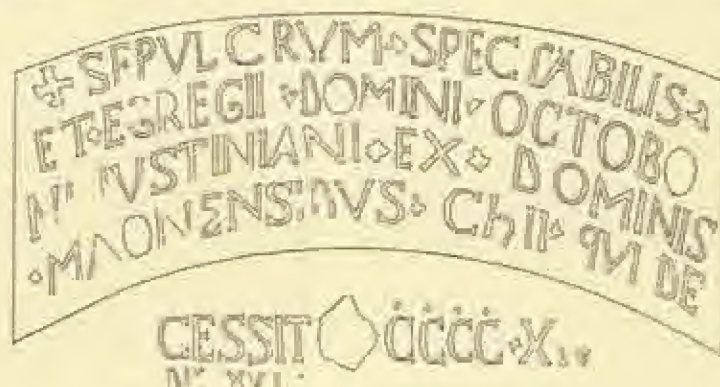 ✠ SEPVLCRVM · SPECTABILIS ·
ET · EGREGII · DOMINI · OCTOBO
N IVSTINIANI · EX · DOMINIS
· MAONENSIBVS · Chii · QVI DE
CESSIT CCCC · X
N° XVI